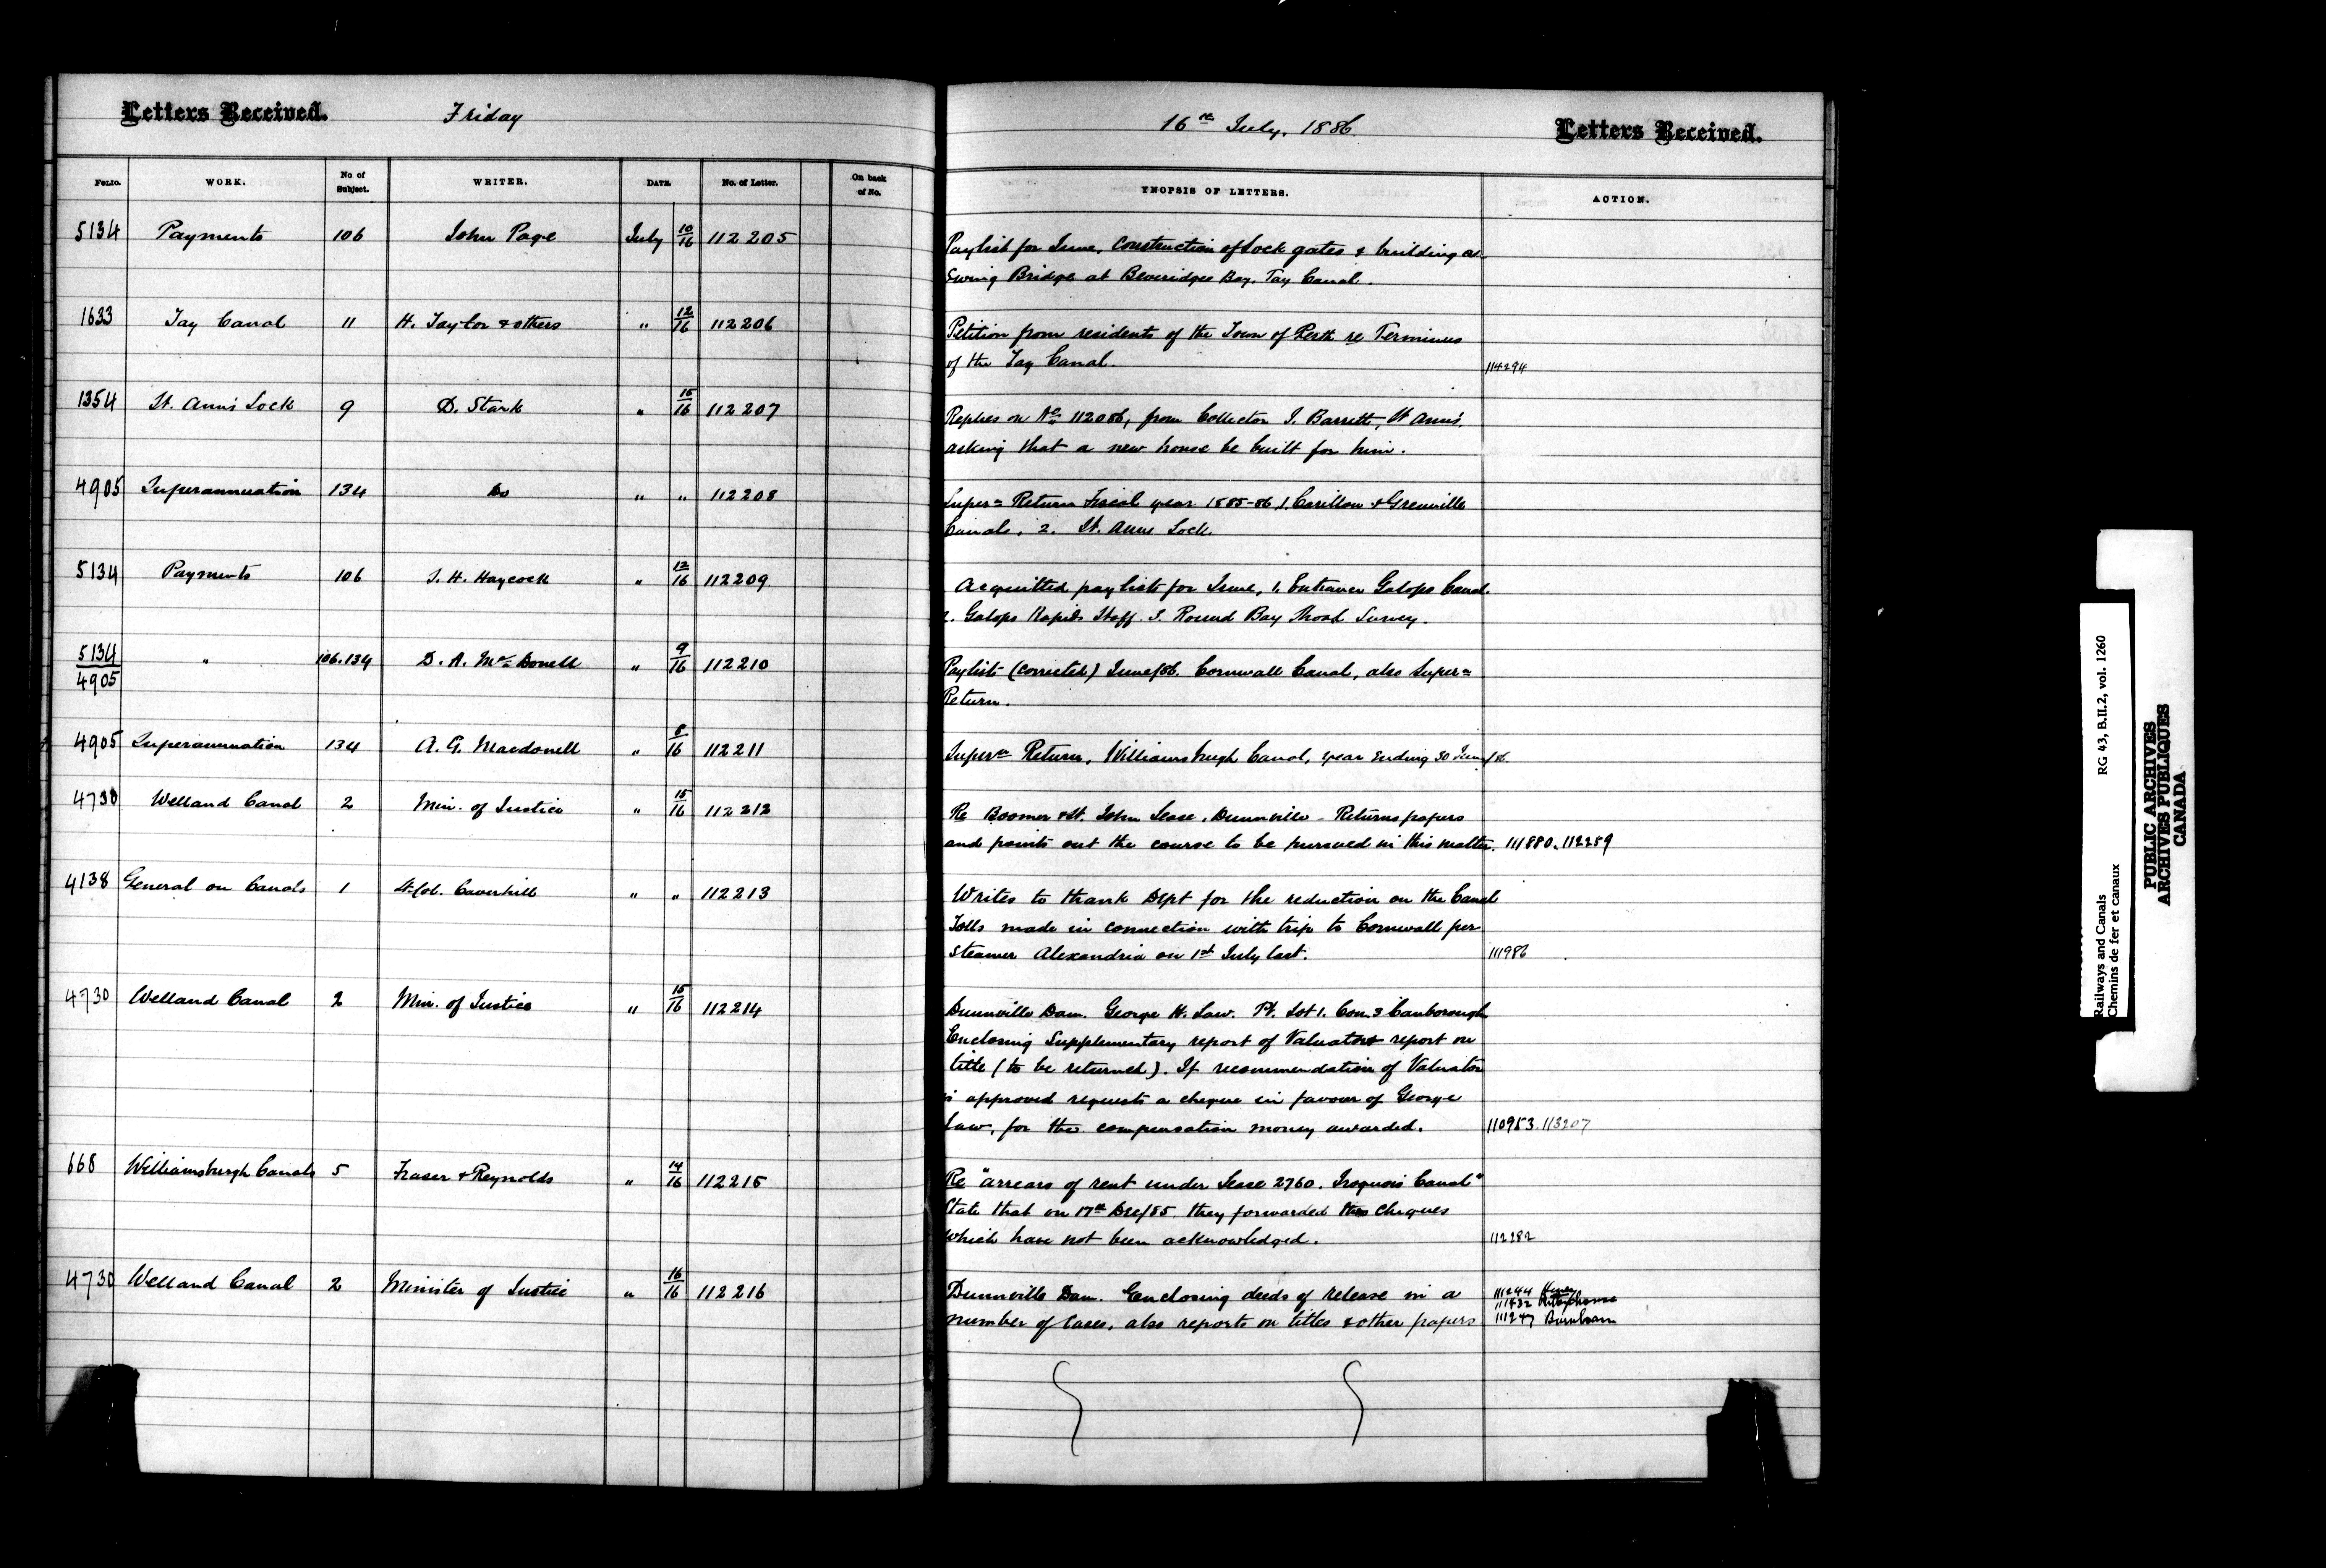 Letters Received. Friday 16th July, 1886. Letters Received.
FOLIO. WORK. No. of Subject. WRITER. DATE. No. of Letter. On back of No. SYNOPSIS OF LETTERS. ACTION.
5134 Payments 106 John Page July 10/16 112205
Paylist for June, Construction of Lock gates & building a
Swing Bridge at Beveridges Bay, Tay Canal.
1633 Tay Canal 11 H. Taylor & others " 12/16 112206
Petition from residents of the Town of Perth re Terminus
of the Tay Canal. 114294
1354 St. Ann's Lock 9 D. Stark " 15/16 112207
Replies on No 112086, from Collector J. Barrett, St Ann's,
asking that a new house be built for him.
4905 Superannuation 134 Do " " 112208
Super= Return Fiscal year 1885-86, 1. Carillon & Grenville
Canals, 2. St. Anns Lock.
5134 Payments 106 J. H. Haycock " 12/16 112209
Acquitted paylists for June, 1. Entrance Galops Canal.
2. Galops Rapids Staff. 3. Round Bay Shoal Survey.
5134/4905 " 106.134 D. A. McDonell " 9/16 112210
Paylist (corrected) June/86. Cornwall Canal, also Super=
Return.
4905 Superannuation 134 A. G. Macdonell " 8/16 112211
Supern Return, Williamsburgh Canal, year Ending 30 June/86.
4730 Welland Canal 2 Min. of Justice " 15/16 112212
Re Boomer & St. John Lease, Dunnville - Returns papers
and points out the course to be pursued in this matter. 111880. 112289
4138 General on Canals 1 Lt. Col. Caverhill " " 112213
Writes to thank Dept for the reduction on the Canal
Tolls made in connection with trip to Cornwall per
Steamer Alexandria on 1st July last. 111986
4730 Welland Canal 2 Min. of Justice " 15/16 112214
Dunnville Dam. George H. Law. Pt. Lot 1. Con. 3 Canborough
Enclosing Supplementary report of Valuator & report on
title (to be returned). If recommendation of Valuator
is approved requests a cheque in favour of George
Law, for the compensation money awarded. 110953. 113207
668 Williamsburgh Canals 5 Fraser & Reynolds " 14/16 112215
Re "arrears of rent under Lease 2760. Iroquois Canal"
State that on 17th Dec/85 they forwarded two cheques
which have not been acknowledged. 112282
4730 Welland Canal 2 Minister of Justice " 16/16 112216
Dunnville Dam. Enclosing deeds of release in a 111244
number of Cases, also reports on titles & other papers 111247 Burnham
Railways and Canals RG 43, B.II.2, vol. 1260
Chemins de fer et canaux
PUBLIC ARCHIVES
ARCHIVES PUBLIQUES
CANADA